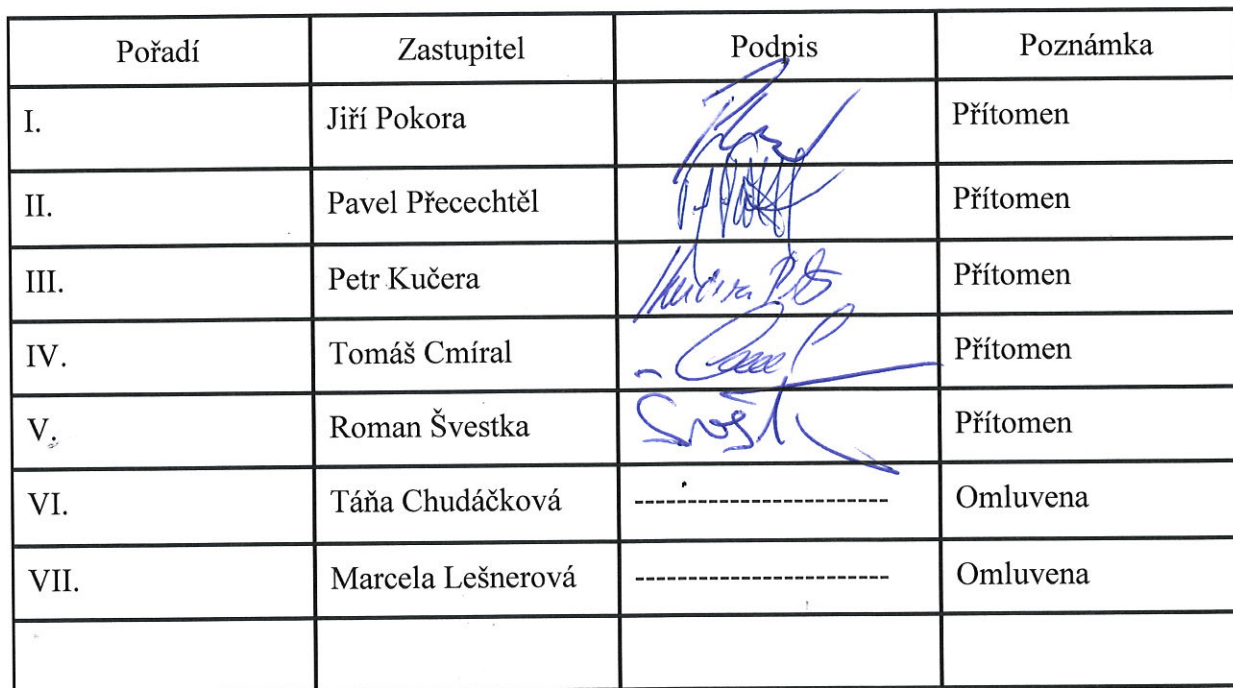 Pořadí Zastupitel Podpis Poznámka
I. Jiří Pokora Přítomen
II. Pavel Přecechtěl Přítomen
III. Petr Kučera Kučera Petr Přítomen
IV. Tomáš Cmíral Přítomen
V. Roman Švestka Přítomen
VI. Táňa Chudáčková ---------------------- Omluvena
VII. Marcela Lešnerová ---------------------- Omluvena